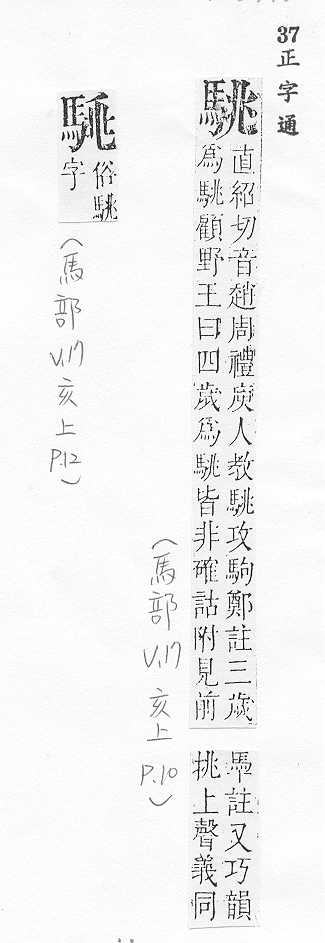 37 正字通
駣
直紹切音趙周禮廋人教駣攻駒鄭註三歲
為駣顧野王曰四歲為駣皆非確詁附見前
註又巧韻
挑上聲義同
(馬部 V.17 亥上 P.10)
俗駣
字
(馬部 V.17 亥上 P.12)